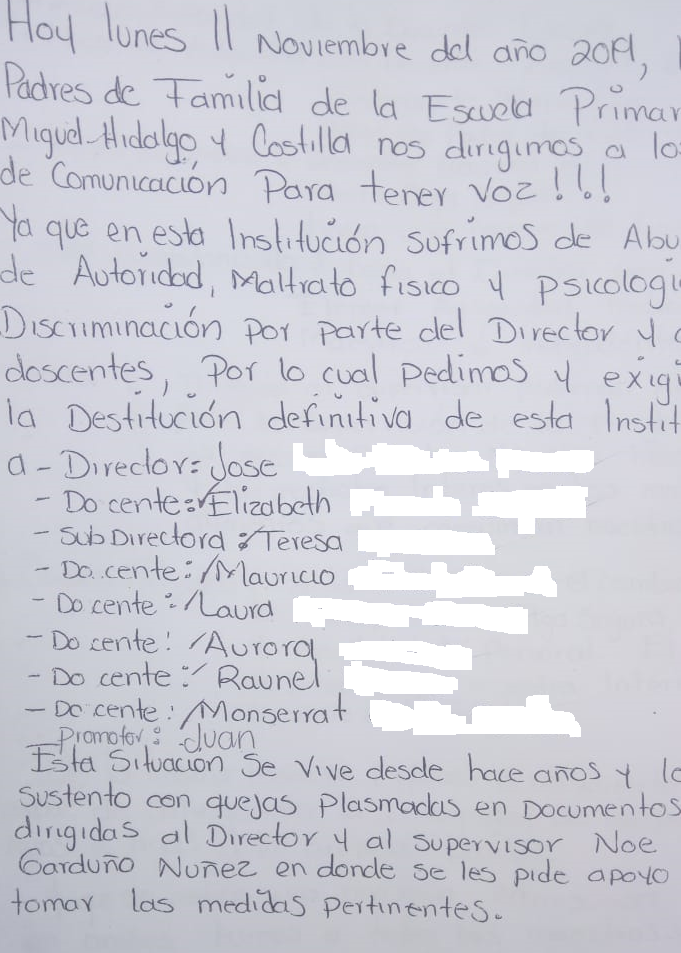 Hoy lunes 11 Noviembre del año 2019,
Padres de Familia de la Escuela Primar
Miguel Hidalgo y Costilla nos dirigimos a lo
de Comunicación Para tener voz!!!
Ya que en esta Institución sufrimos de Abu
de Autoridad, Maltrato fisico y psicologi
Discriminación por parte del Director y
doscentes, Por lo cual pedimos y exigi
la Destitución definitiva de esta Instit
a - Director: Jose
- Docente: Elizabeth
- SubDirectora: Teresa
- Docente: Mauricio
- Docente: Laura
- Docente: Aurora
- Docente: Raunel
- Docente: Monserrat
Promotor: Juan
Esta Situacion Se Vive desde hace años y lo
sustento con quejas Plasmadas en Documentos
dirigidas al Director y al supervisor Noe
Garduño Nuñez en donde se les pide apoyo
tomar las medidas Pertinentes.